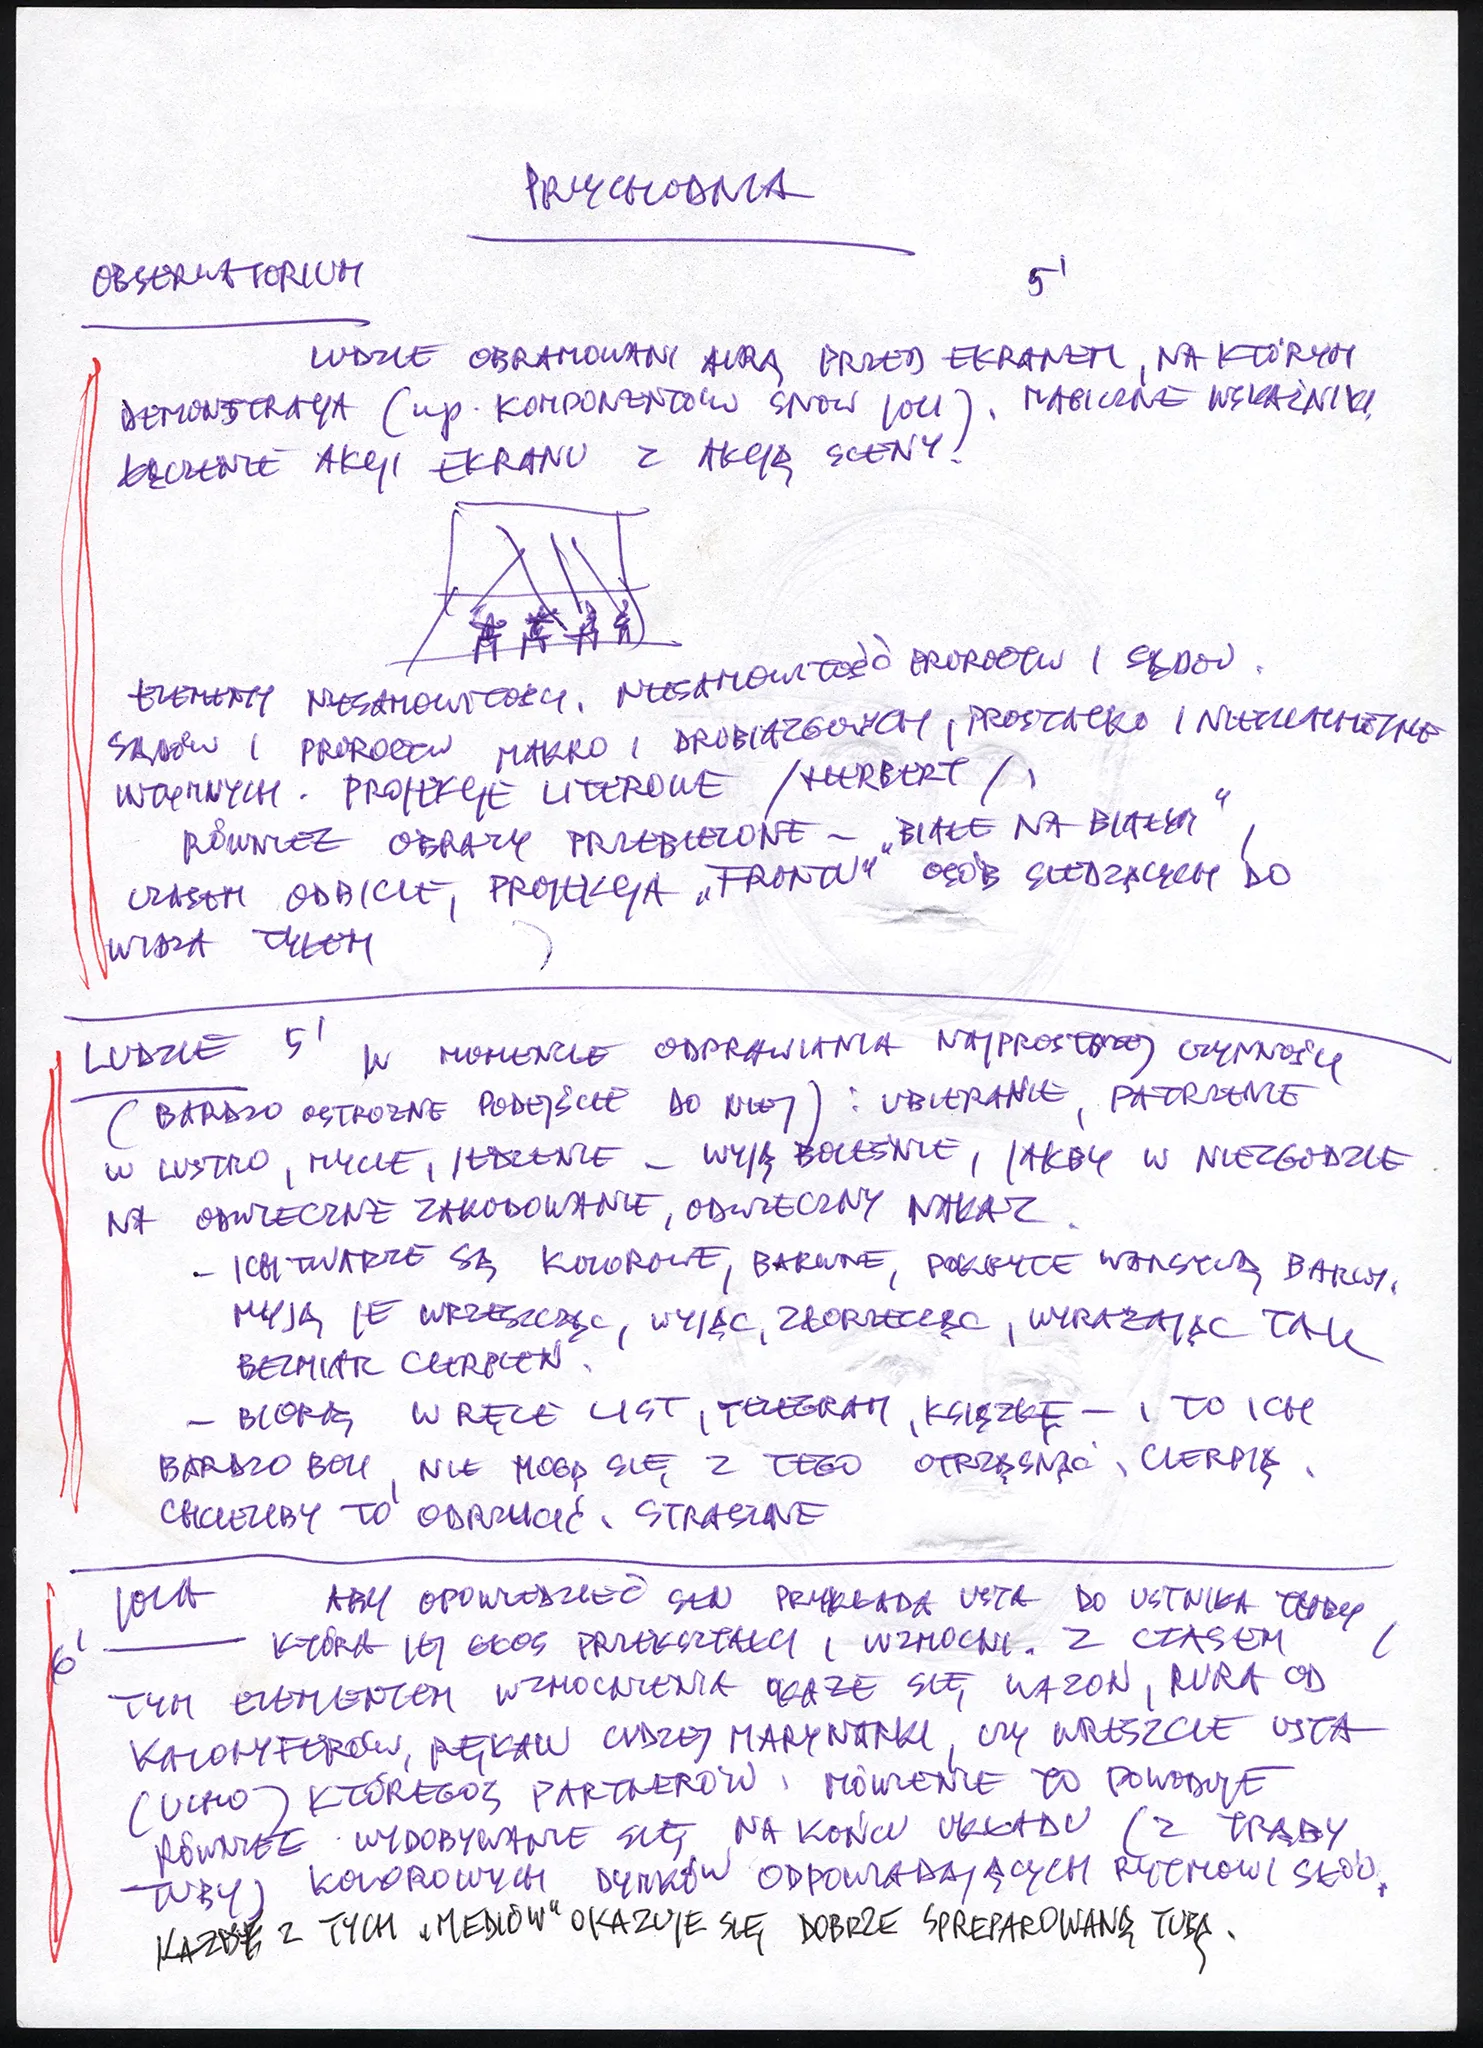 PRZYCHODNIA
OBSERWATORIUM 5'
LUDZIE OBRAMOWANI AURĄ PRZED EKRANEM, NA KTÓRYM
DEMONSTRACJA (np. KOMPONENTÓW SNÓW JOLI). MAGICZNE WSKAŹNIKI,
ŁĄCZENIE AKCJI EKRANU Z AKCJĄ SCENY!
ELEMENTY NIESAMOWITOŚCI. NIESAMOWITOŚĆ PROROCTW I SĄDÓW.
SĄDÓW I PROROCTW MAKRO I DROBIAZGOWYCH, I
INTYMNYCH. PROJEKCJE LITEROWE /HERBERT/,
RÓWNIEŻ OBRAZY PRZEBIELONE – „BIAŁE NA BIAŁYM",
CZASEM ODBICIE, PROJEKCJA „FRONTU" OSÓB SIEDZĄCYCH DO
WIDZA TYŁEM
LUDZIE 5' W MOMENCIE ODPRAWIANIA NAJPROSTSZEJ CZYNNOŚCI
(BARDZO OSTROŻNE PODEJŚCIE DO NIEJ): UBIERANIE, PATRZENIE
W LUSTRO, MYCIE, JEDZENIE – WYJĄ BOLEŚNIE, JAKBY W NIEZGODZIE
NA ODWIECZNE ZAKODOWANIE, ODWIECZNY NAKAZ.
– ICH TWARZE SĄ KOLOROWE, BARWNE, POKRYTE WARSTWĄ BARWY.
MYJĄ JE WRZESZCZĄC, WYJĄC, ZŁORZECZĄC, WYRAŻAJĄC TAK
BEZMIAR CIERPIEŃ.
– BIORĄ W RĘCE LIST, TELEGRAM, KSIĄŻKĘ – I TO ICH
BARDZO BOLI, NIE MOGĄ SIĘ Z TEGO OTRZĄSNĄĆ, CIERPIĄ.
CHCIELIBY TO ODRZUCIĆ. STRASZNE
JOLA ABY OPOWIEDZIEĆ SEN PRZYKŁADA USTA DO USTNIKA TUBY,
6' KTÓRA JEJ GŁOS PRZEKSZTAŁCI I WZMOCNI. Z CZASEM
TYM ELEMENTEM WZMOCNIENIA OKAŻE SIĘ WAZON, RURA OD
KALORYFERÓW, RĘKAW CUDZEJ MARYNARKI, CZY WRESZCIE USTA
(UCHO) KTÓREGOŚ PARTNERÓW. MÓWIENIE TO POWODUJE
RÓWNIEŻ WYDOBYWANIE SIĘ NA KOŃCU UKŁADU (Z TRĄBY
TUBY) KOLOROWYCH DYMKÓW ODPOWIADAJĄCYCH RYTMOWI SŁÓW.
KAŻDE Z TYCH „MEDIÓW" OKAZUJE SIĘ DOBRZE SPREPAROWANĄ TUBĄ.